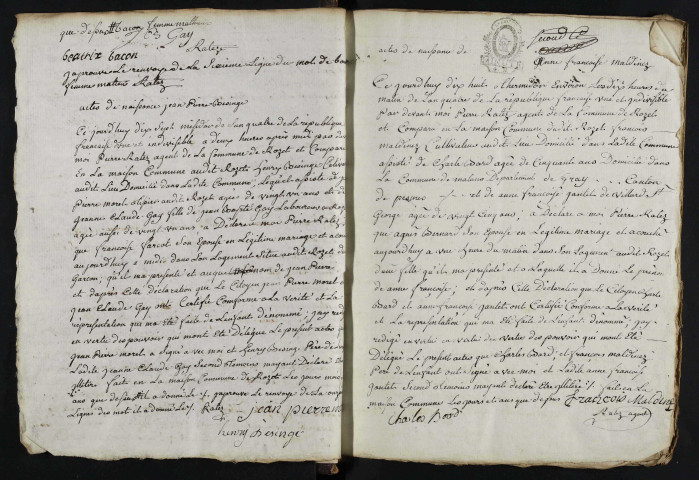 que dessus Bacon femme malbrun
Gay
beatrix bacon
Ratez
J'aprouve le renvoye de la sixieme Ligne du mot de bacon
femme Ratez
actes de naissance jean Pierre Besinge
Ce jourdhuy dix sept misidor de l'an quatre de la republique
française une et indivisible a deux heures apres midi par devant
moi Pierre Ratez agent de la Commune de Rozet et Compare
En la maison Commune audit Rozet henry Besinge Cultivateur
audit Lieu Domicilié dans ladite Commune, Lequel assisté de jean
Pierre morel aussi audit Rozet agés de vingt un ans et de
jeanne Claude Gay fille de jean Gay Laboureur audit Rozet
agée aussi de vingt un ans a Déclaré a moi Pierre Ratez
que françoise Jarcot Son Epouse en Légitime mariage et accouché
aujourdhuy a midi dans son Logement Situé audit Rozet d'un
Garçon, qu'il ma présenté et auquel nom de jean Pierre
et d'apres Cette déclaration que le Citoyen jean Pierre morel et
jean Claude Gay ont Certifié Conforme a la verité et La
représentation qui ma été faite de L'enfant dénommé, j'ay redigé
en vertu des pouvoir qui mont été Délégué Le présent actes que
jean Pierre morel a Signé avec moi et henry Besinge Pere de l'enfant
Ladite jeanne Claude Gay Second témoins mayant Déclaré
illitéré fait en La maison Commune de Rozet Les jours mois
ans que dessus j'aprouve le renvoye de La
Lignes des mot il a donné Le Ratez jean pierre m
henry Besinge
second
actes de naissance de
Anne françoise maldiney
Ce jourdhuy dix huit thermidor Environ Les dix heures du
matin de l'an quatre de la republique française une et indivisible
Par devant moi Pierre Ratez agent de la Commune de Rozet
et Compare En la maison Commune dudit Rozet françois
maldiney Cultivateur audit Lieu Domicilié dans Ladite Commune
assisté de Charle Bard agée de Cinquante ans Domicilié dans
La Commune de malans Département de Gray Canton
de pesmes et de anne françoise gautet de villard St
George agée de vingt Cinq ans; a Déclaré a moi Pierre Ratez
que agnes Bernard Son Epouse en Légitime mariage et acouché
aujourdhuy a une heure du matin dans Son Logement audit Rozet
d'une fille qu'il ma présenté et a Laquelle il a Donné Le prenom
de anne françoise; et d'apres Cette Déclaration que Le Citoyen Charle
Bard et anne françoise gautet ont Certifié Conforme a La verité
et La représentation qui ma été faite de L'enfant dénommé; j'ay
redigé en vertu des vertus des pouvoirs qui mont été
Délégué Le présent actes que Charles Bard; et françois maldiney
Pere de L'enfant ont Signé avec moi et Ladite anne françoise
gautet Second témoins mayant declaré être illitéré; fait en La
maison Commune Les jours et ans que dessus françois Maldiney
Charles Bard
Ratez agent